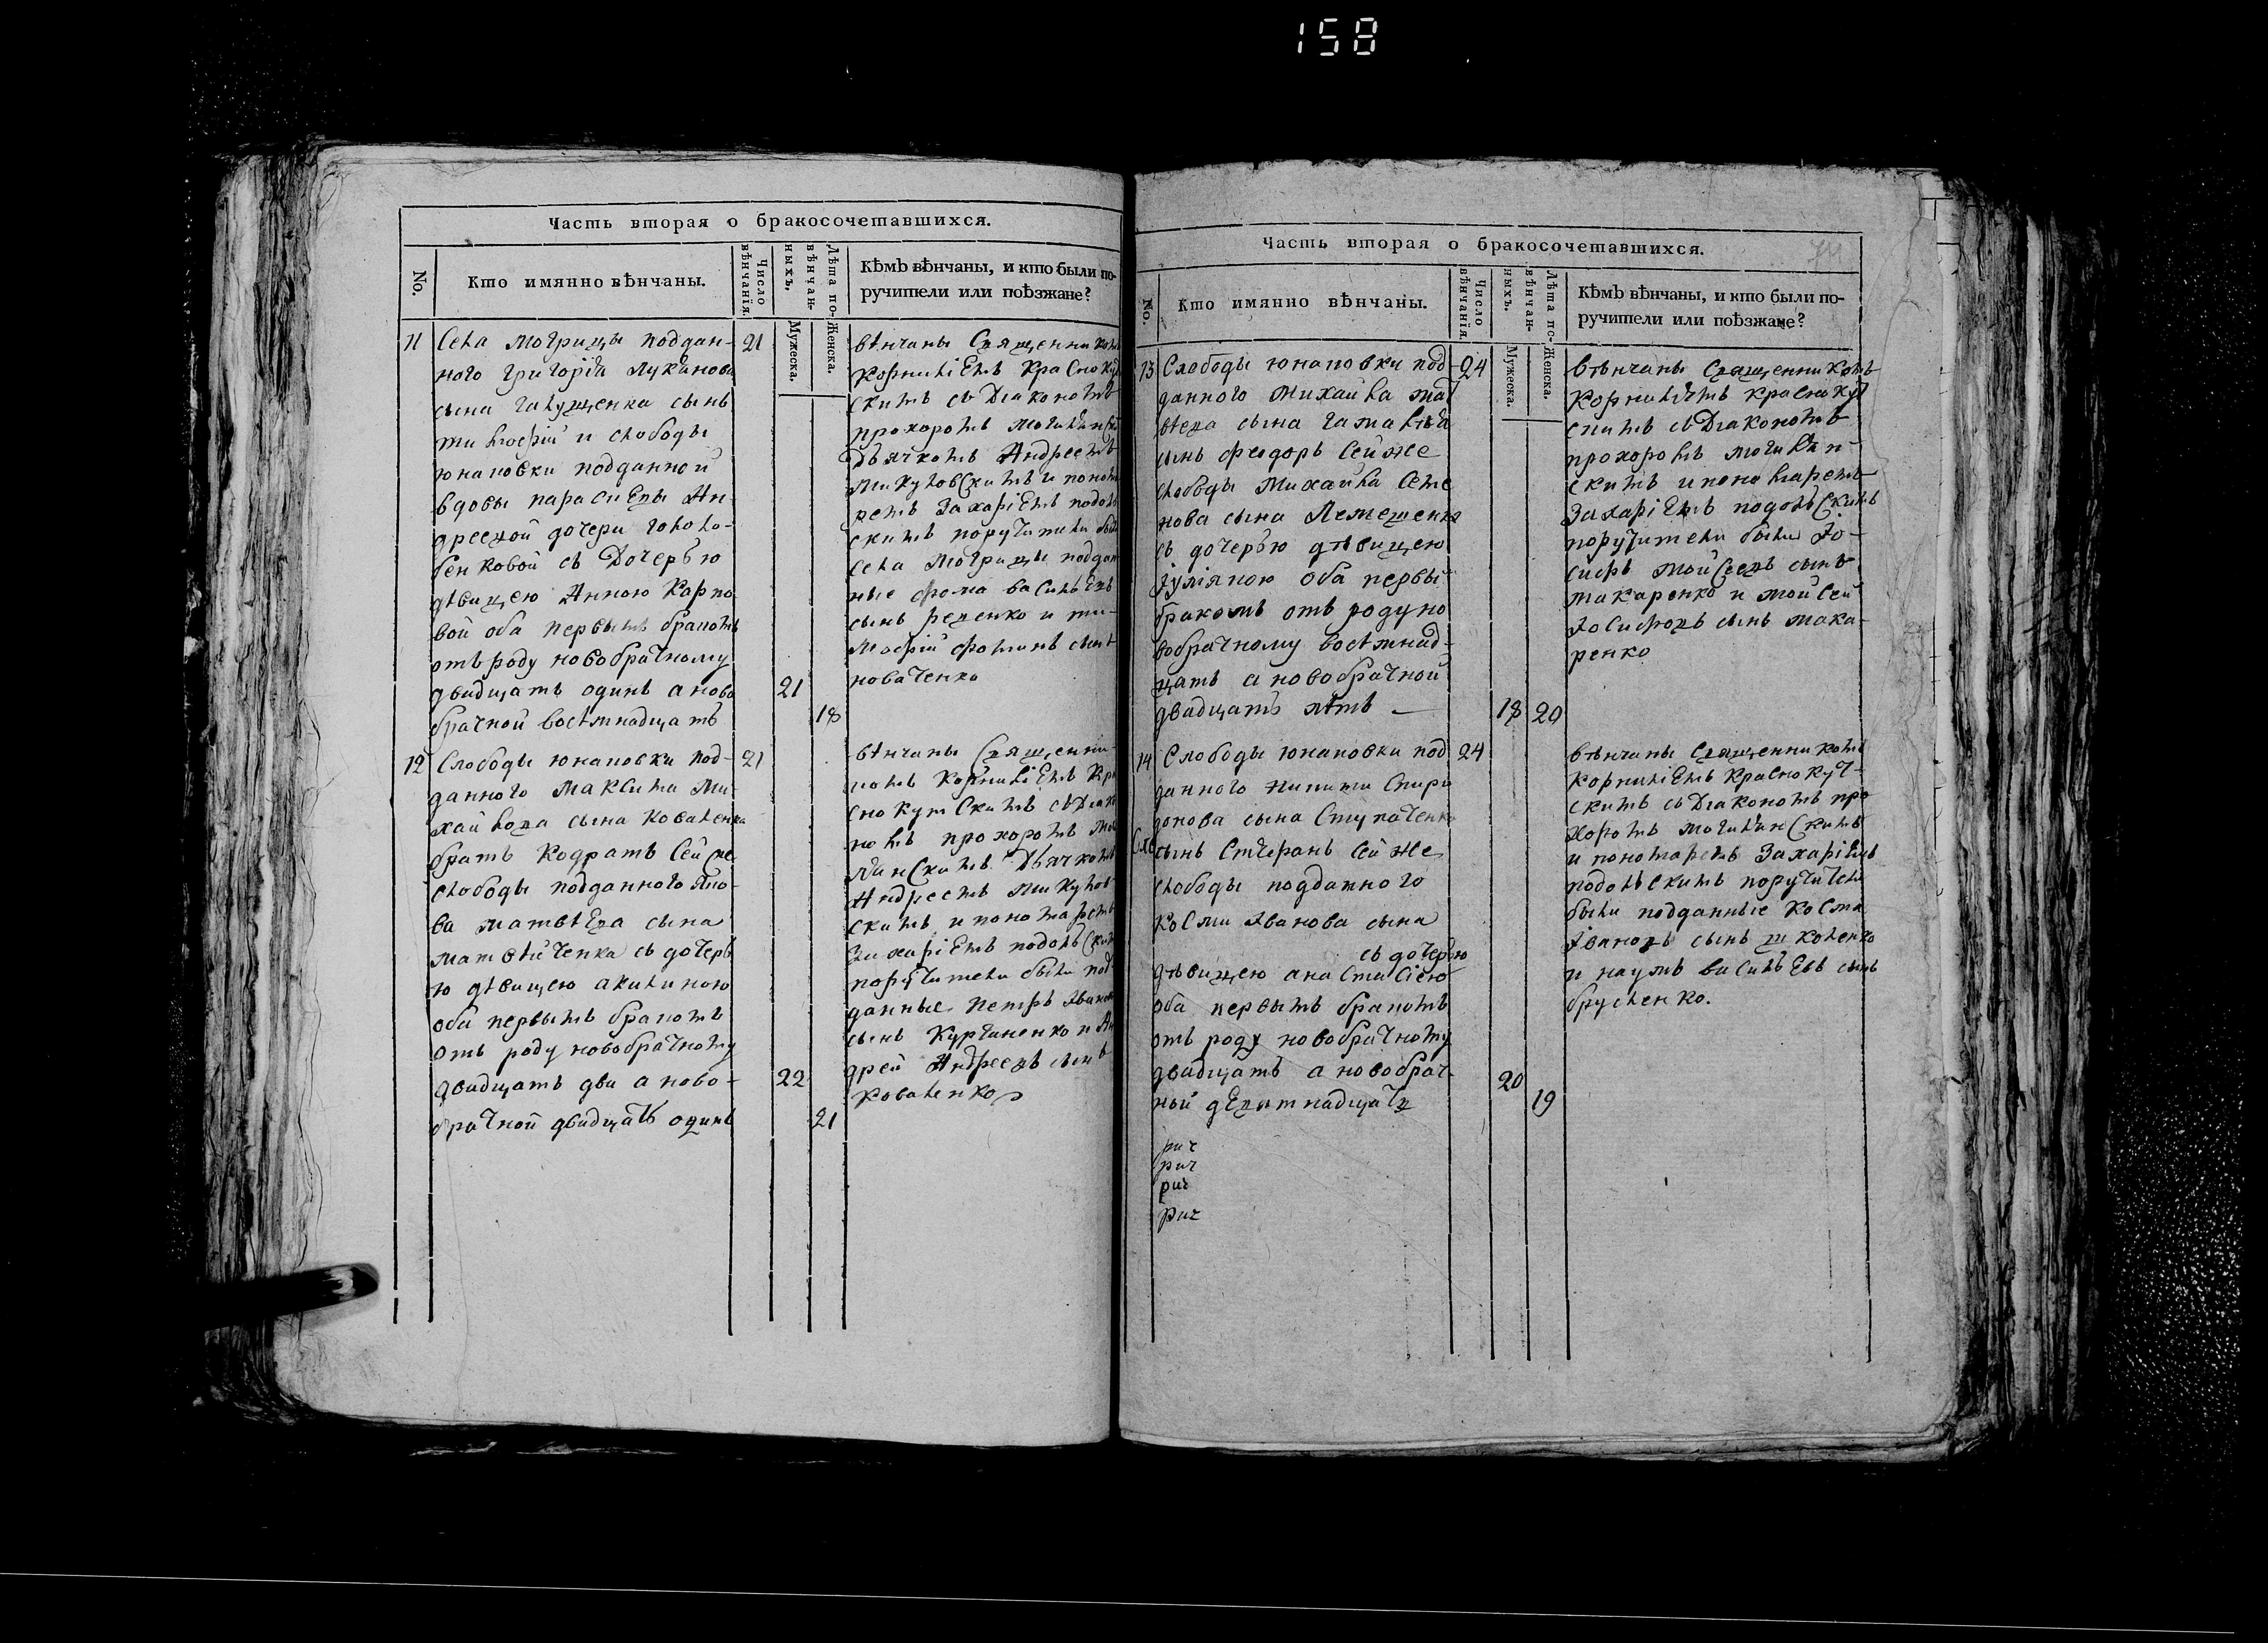 158
Часть вторая о бракосочетавшихся.
No.
Кто имянно вѣнчаны.
Число вѣнчанія.
Лѣта по-
вѣнчан-
ныхъ,
Мужеска.
Женска.
Кѣмъ вѣнчаны, и кто были по-
ручители или поѣзжане?
11 села могрицы поддан- 21
ного григорія луканова
сына сынъ
тимофій и слободы
юнаповки подданной
вдовы параскевы Ан-
дреевой дочери голо-
бенковой съ дочерью
дѣвицею Анною Карпо
вой оба первымъ бракомъ
отъ роду новобрачному
двадцать одинъ а ново 21
брачной восѣмнадцать 18
вѣнчаны Священникомъ
Корниліемъ Краснокут
скимъ съ Діакономъ
прохоромъ
Дьячкомъ Андреемъ
и понома
ремъ Захаріемъ подоль
скимъ поручители были
села Могрицы поддан
ные фома васильевъ
сынъ и ти-
мофій фоминъ сынъ
новаченко
12 Слободы юнаповки под- 21
данного Максима Ми-
хайлова сына коваленка
братъ Кодратъ сей же
слободы подданного
ва матвѣева сына
матвѣиченка съ дочерь
ю дѣвицею акилиною
оба первымъ бракомъ
отъ роду новобрачному
двадцать два а ново- 22
брачной двадцать одинъ 21
вѣнчаны Священни-
комъ Корниліемъ Кра
снокутскимъ съ Діако
номъ прохоромъ
Дьячкомъ
Андреемъ
скимъ и пономаремъ
Захаріемъ подольским
поручители были под
данные петръ Иванов
сынъ и Ан
дрей Андреевъ сынъ
коваленко
Часть вторая о бракосочетавшихся.
No.
Кто имянно вѣнчаны.
Число вѣнчанія.
Лѣта по-
вѣнчан-
ныхъ,
Мужеска.
Женска.
Кѣмъ вѣнчаны, и кто были по-
ручители или поѣзжане?
13 Слободы юнаповки под 24
данного Михайла мат
вѣева сына гамалѣя
сынъ федоръ сей же
слободы Михайла Семе
нова сына Лемешенка
съ дочерью дѣвицею
Іуліяною оба первый
бракомъ отъ роду но
вобрачному восѣмнад-
цать а новобрачной
двадцать лѣтъ — 18 20
вѣнчаны Священникомъ
Корниліемъ краснокут
скимъ съ Діакономъ
прохоромъ
скимъ и пономаремъ
Захаріемъ подольскимъ
поручители были Іо-
сифъ Мойсеевъ сынъ
макаренко и мойсей
Іосифовъ сынъ мака-
ренко
14 Слободы юнаповки под 24
данного никиты Спири
донова сына Ступаченка
сынъ Стефанъ сей же
слободы подданного
космы Иванова сына
съ дочерью
дѣвицею анастасіею
оба первымъ бракомъ
отъ роду новобрачному
двадцать а новобрач- 20
ной девятнадцать 19
рич
рич
рич
рич
вѣнчаны Священникомъ
Корниліемъ Краснокут-
скимъ съ Діакономъ про
хоромъ
и пономаремъ Захаріемъ
подольскимъ поручители
были подданные косма
Ивановъ сынъ школенко
и наумъ васильевъ сынъ
брусенко.